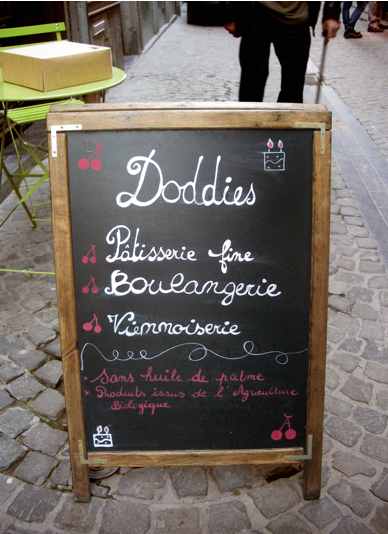 Doddies
Pâtisserie fine
Boulangerie
Viennoiserie
Sans huile de palme
Produits issus de l'Agriculture
Biologique